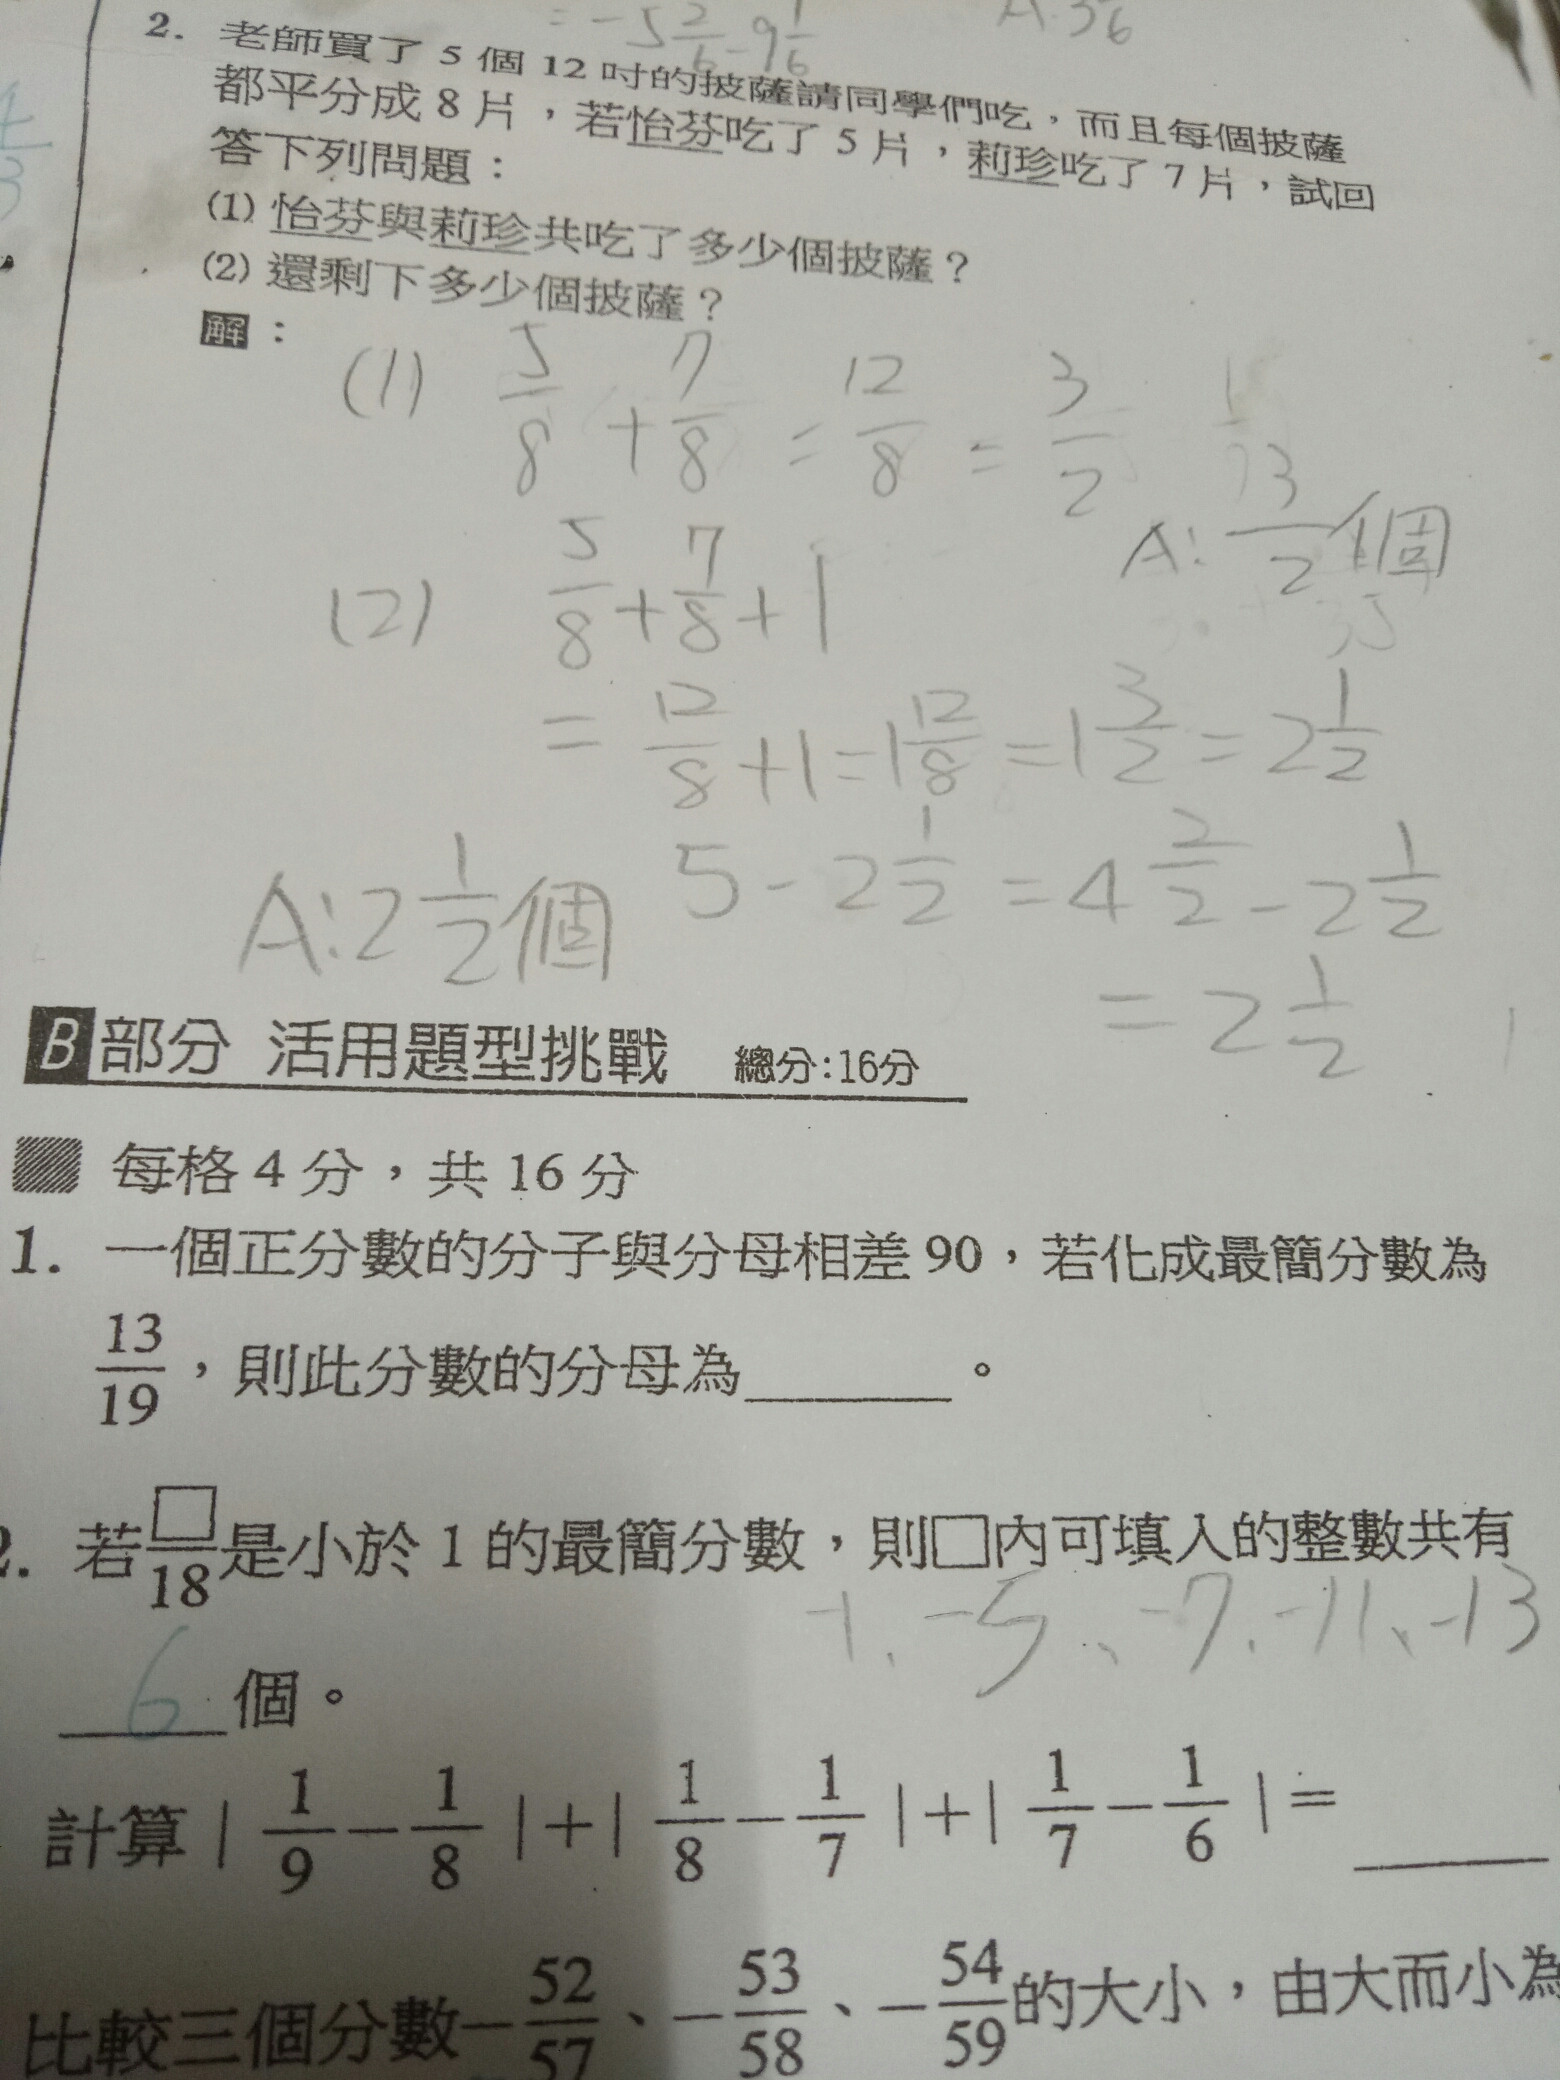 = -5 2/6 - 9 1/6
2. 老師買了 5 個 12 吋的披薩請同學們吃，而且每個披薩
都平分成 8 片，若怡芬吃了 5 片，莉珍吃了 7 片，試回
答下列問題：
(1) 怡芬與莉珍共吃了多少個披薩？
(2) 還剩下多少個披薩？
解：
(1) 5/8 + 7/8 = 12/8 = 3/2
A: 3/2 個
(2) 5/8 + 7/8 + 1
= 12/8 + 1 = 1 12/8 = 1 3/2 = 2 1/2
5 - 2 1/2 = 4 2/2 - 2 1/2
= 2 1/2
A: 2 1/2 個
B 部分 活用題型挑戰 總分:16分
每格 4 分，共 16 分
1. 一個正分數的分子與分母相差 90，若化成最簡分數為
13/19，則此分數的分母為______。
2. 若□/18是小於 1 的最簡分數，則□內可填入的整數共有
-1、-5、-7、-11、-13
6 個。
計算｜1/9 - 1/8｜+｜1/8 - 1/7｜+｜1/7 - 1/6｜= ______
比較三個分數 -52/57、-53/58、-54/59 的大小，由大而小為